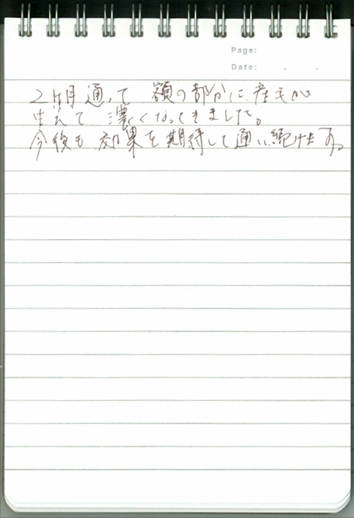 Page:
Date: . .
2ヶ月通って 額の部分に産毛が
生えて 濃くなってきました。
今後も 効果を期待して通い続けます。